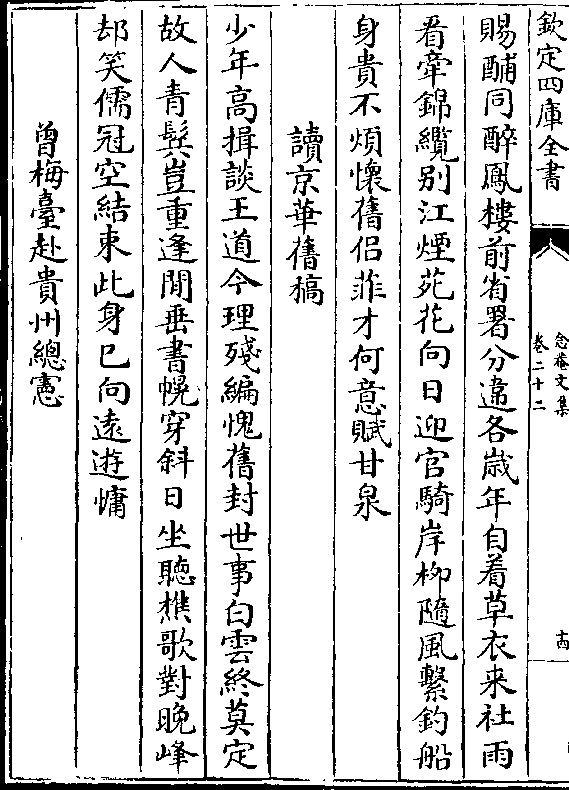 欽定四庫全書
念菴文集
卷二十二
十四
賜酺同醉鳳樓前省署分違各歲年自着草衣来社雨
看牽錦纜別江煙苑花向日迎官騎岸柳隨風繫釣船
身貴不煩懷舊侣菲才何意賦甘泉
讀京華舊稿
少年高揖談王道今理殘編愧舊封世事白雲終莫定
故人青鬂豈重逢閒垂書幌穿斜日坐聽樵歌對晚峰
却笑儒冠空結束此身已向遠遊慵
曾梅臺赴貴州總憲